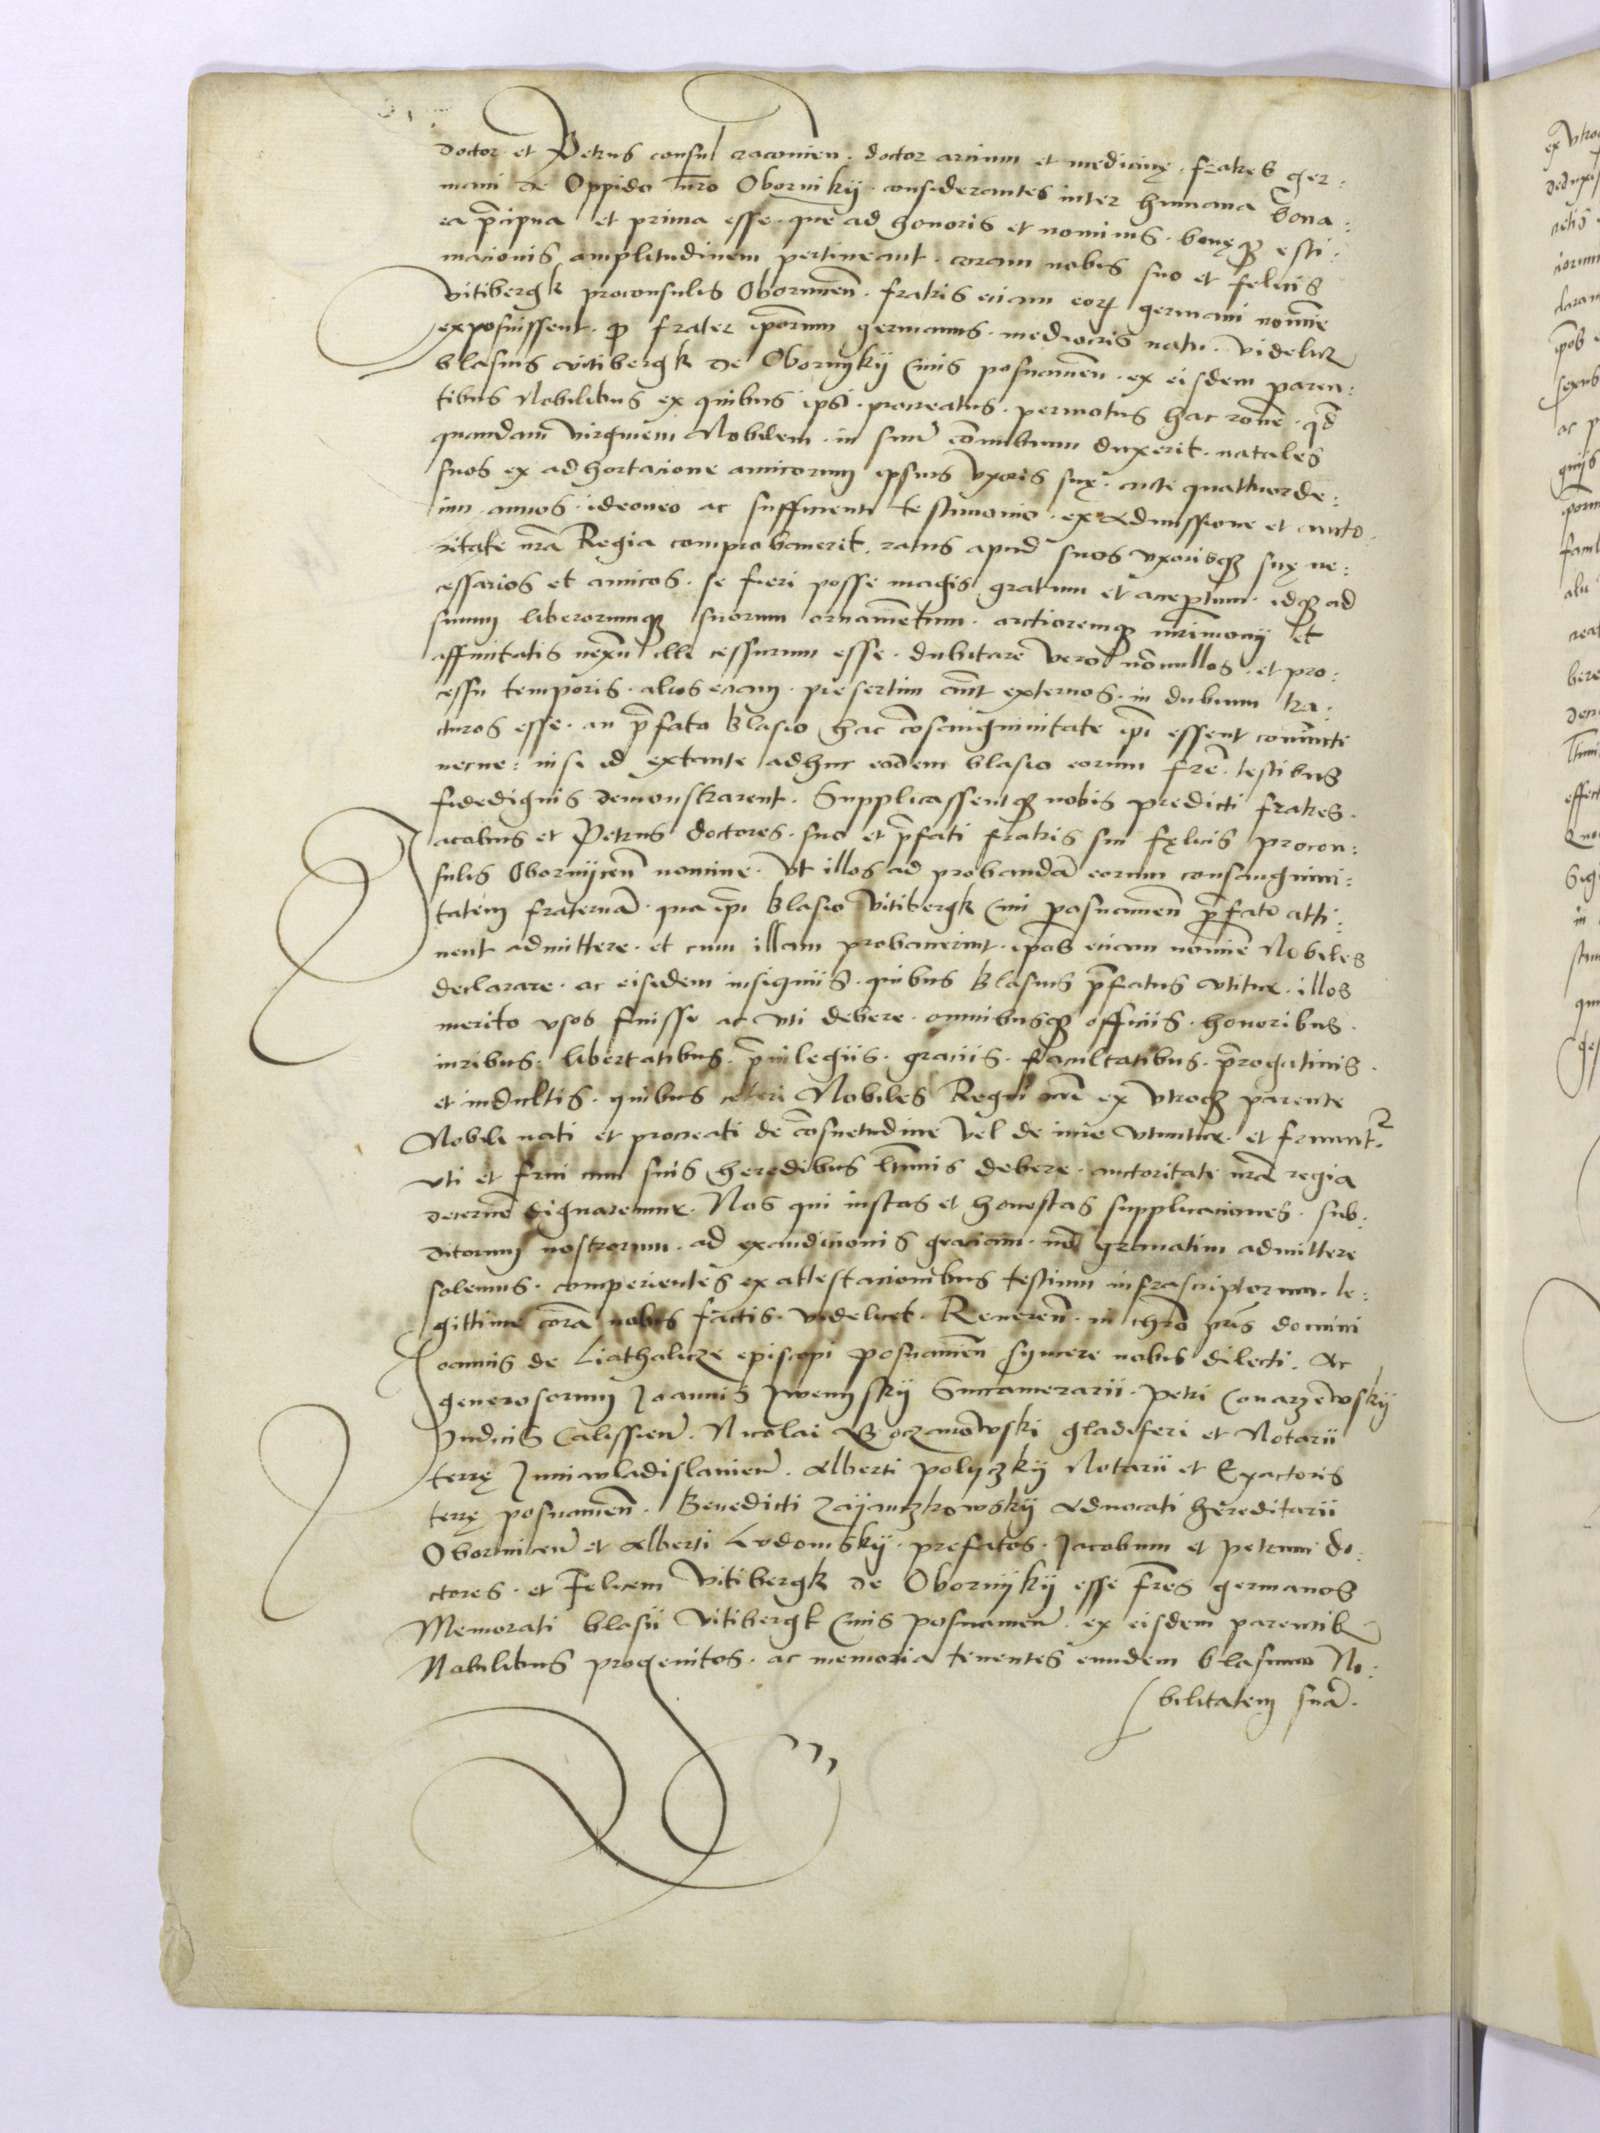 doctor et Petrus consul cracovien. doctor arcium et medicinę. fratres ger:
mani de Oppido nr̄o Oborniky. considerantes inter humana bona:
ea p̄cipua et prima esse. que ad honoris et nominis. bonęqȝ esti:
macionis amplitudinem pertineant. coram nobis suo et felicis
Vitibergk proconsulis Obornicen̄. fratris eciam eorꝝ germani nomīe
exposuissent. qȝ frater ip̄orum germanus. mediocris natu. videlicȝ
blasius vitibergk de Obornyky Ciuis posnanien̄. ex eisdem paren:
tibus Nobilibus ex quibus ipsi. procreatus. permotus hac rōne. qđ
quandam virginem Nobilem. in suū cōnubium duxerit. natales
suos ex adhortacione amicorum ipsius vxoris suę. ante quattuorde:
cim annos. ideoneo ac sufficienti testimonio. ex admissione et aucto:
ritate nr̄a Regia comprobauerit. ratus apud suos vxorisqȝ suę ne:
cessarios et amicos. se fieri posse magis gratum et acceptum. idqȝ ad
suum liberorumqȝ suorum ornamētum. arctioremqȝ mr̄imonij et
affinitatis nexū illi cessurum esse. dubitare vero nōnullos. et pro:
cessu temporis. alios eciam. presertim aūt externos. in dubium tra:
cturos esse. an p̄fato blasio hac cōsanguinitate ip̄i essent coniūcti
necne: nisi id extante adhuc eodem blasio eorum fr̄e. testibus
fidedignis demonstrarent. Supplicassentqȝ nobis predicti fratres.
Jacobus et Petrus doctores. suo et p̄fati fratris sui fęlicis procon:
sulis Obornijcen̄ nomine. Vt illos ad probandā eorum consanguini:
tatem fraternā. qua ip̄i blasio Vitibergk Ciui posnanien̄ p̄fato atti:
nent admittere. et cum illam probauerint. ip̄os eciam nomīe Nobiles
declarare. ac eisdem insigniis. quibus blasius p̄fatus vtitur. illos
merito vsos fuisse ac vti debere. omnibusqȝ officiis. honoribus.
iuribus. libertatibus. p̄uilegiis. graciis. facultatibus. p̄rogatiuis.
et indultis. quibus ceteri Nobiles Regni nr̄i ex vtroqȝ parente
Nobili nati et procreati de cōsuetudine vel de iure vtuntur. et fruunt².
vti et frui cum suis heredibus ltīmis debere. auctoritate nr̄a regia
decernē dignaremur. Nos qui iustas et honestas supplicaciones. sub:
ditorum nostrorum. ad exaudicionis graciam. nō grauatim admittere
solemus. comperientes ex attestacionibus testium infrascriptorum. le:
gittime corā nobis factis. videlicet. Reueren̄. in chr̄o pr̄is domini
Joannis de Liathalicze episcopi posnanien̄ syncere nobis dilecti. Ac
generosorum Joannis Jwenskij Succamerarii. Petri Conarzēwskij
Judicis Calissien̄. Nicolai gladiferi et Notarii
terrę Juniwladislauien̄. Alberti polyczkij Notarii et Exactoris
terrę posnanien̄. Benedicti Zaijanczkowskij Aduocati hereditarii
Obornicen̄ et Alberti Lvdomskij. prefatos. Jacobum et Petrum do:
ctores. et Felicem Vitibergk de Obornijkij esse fr̄es germanos
Memorati blasii Vitibergk Ciuis Posnanien̄. ex eisdem parentibȝ
Nobilibus progenitos. ac memoria tenentes eundem blasium No:
bilitatem suā.